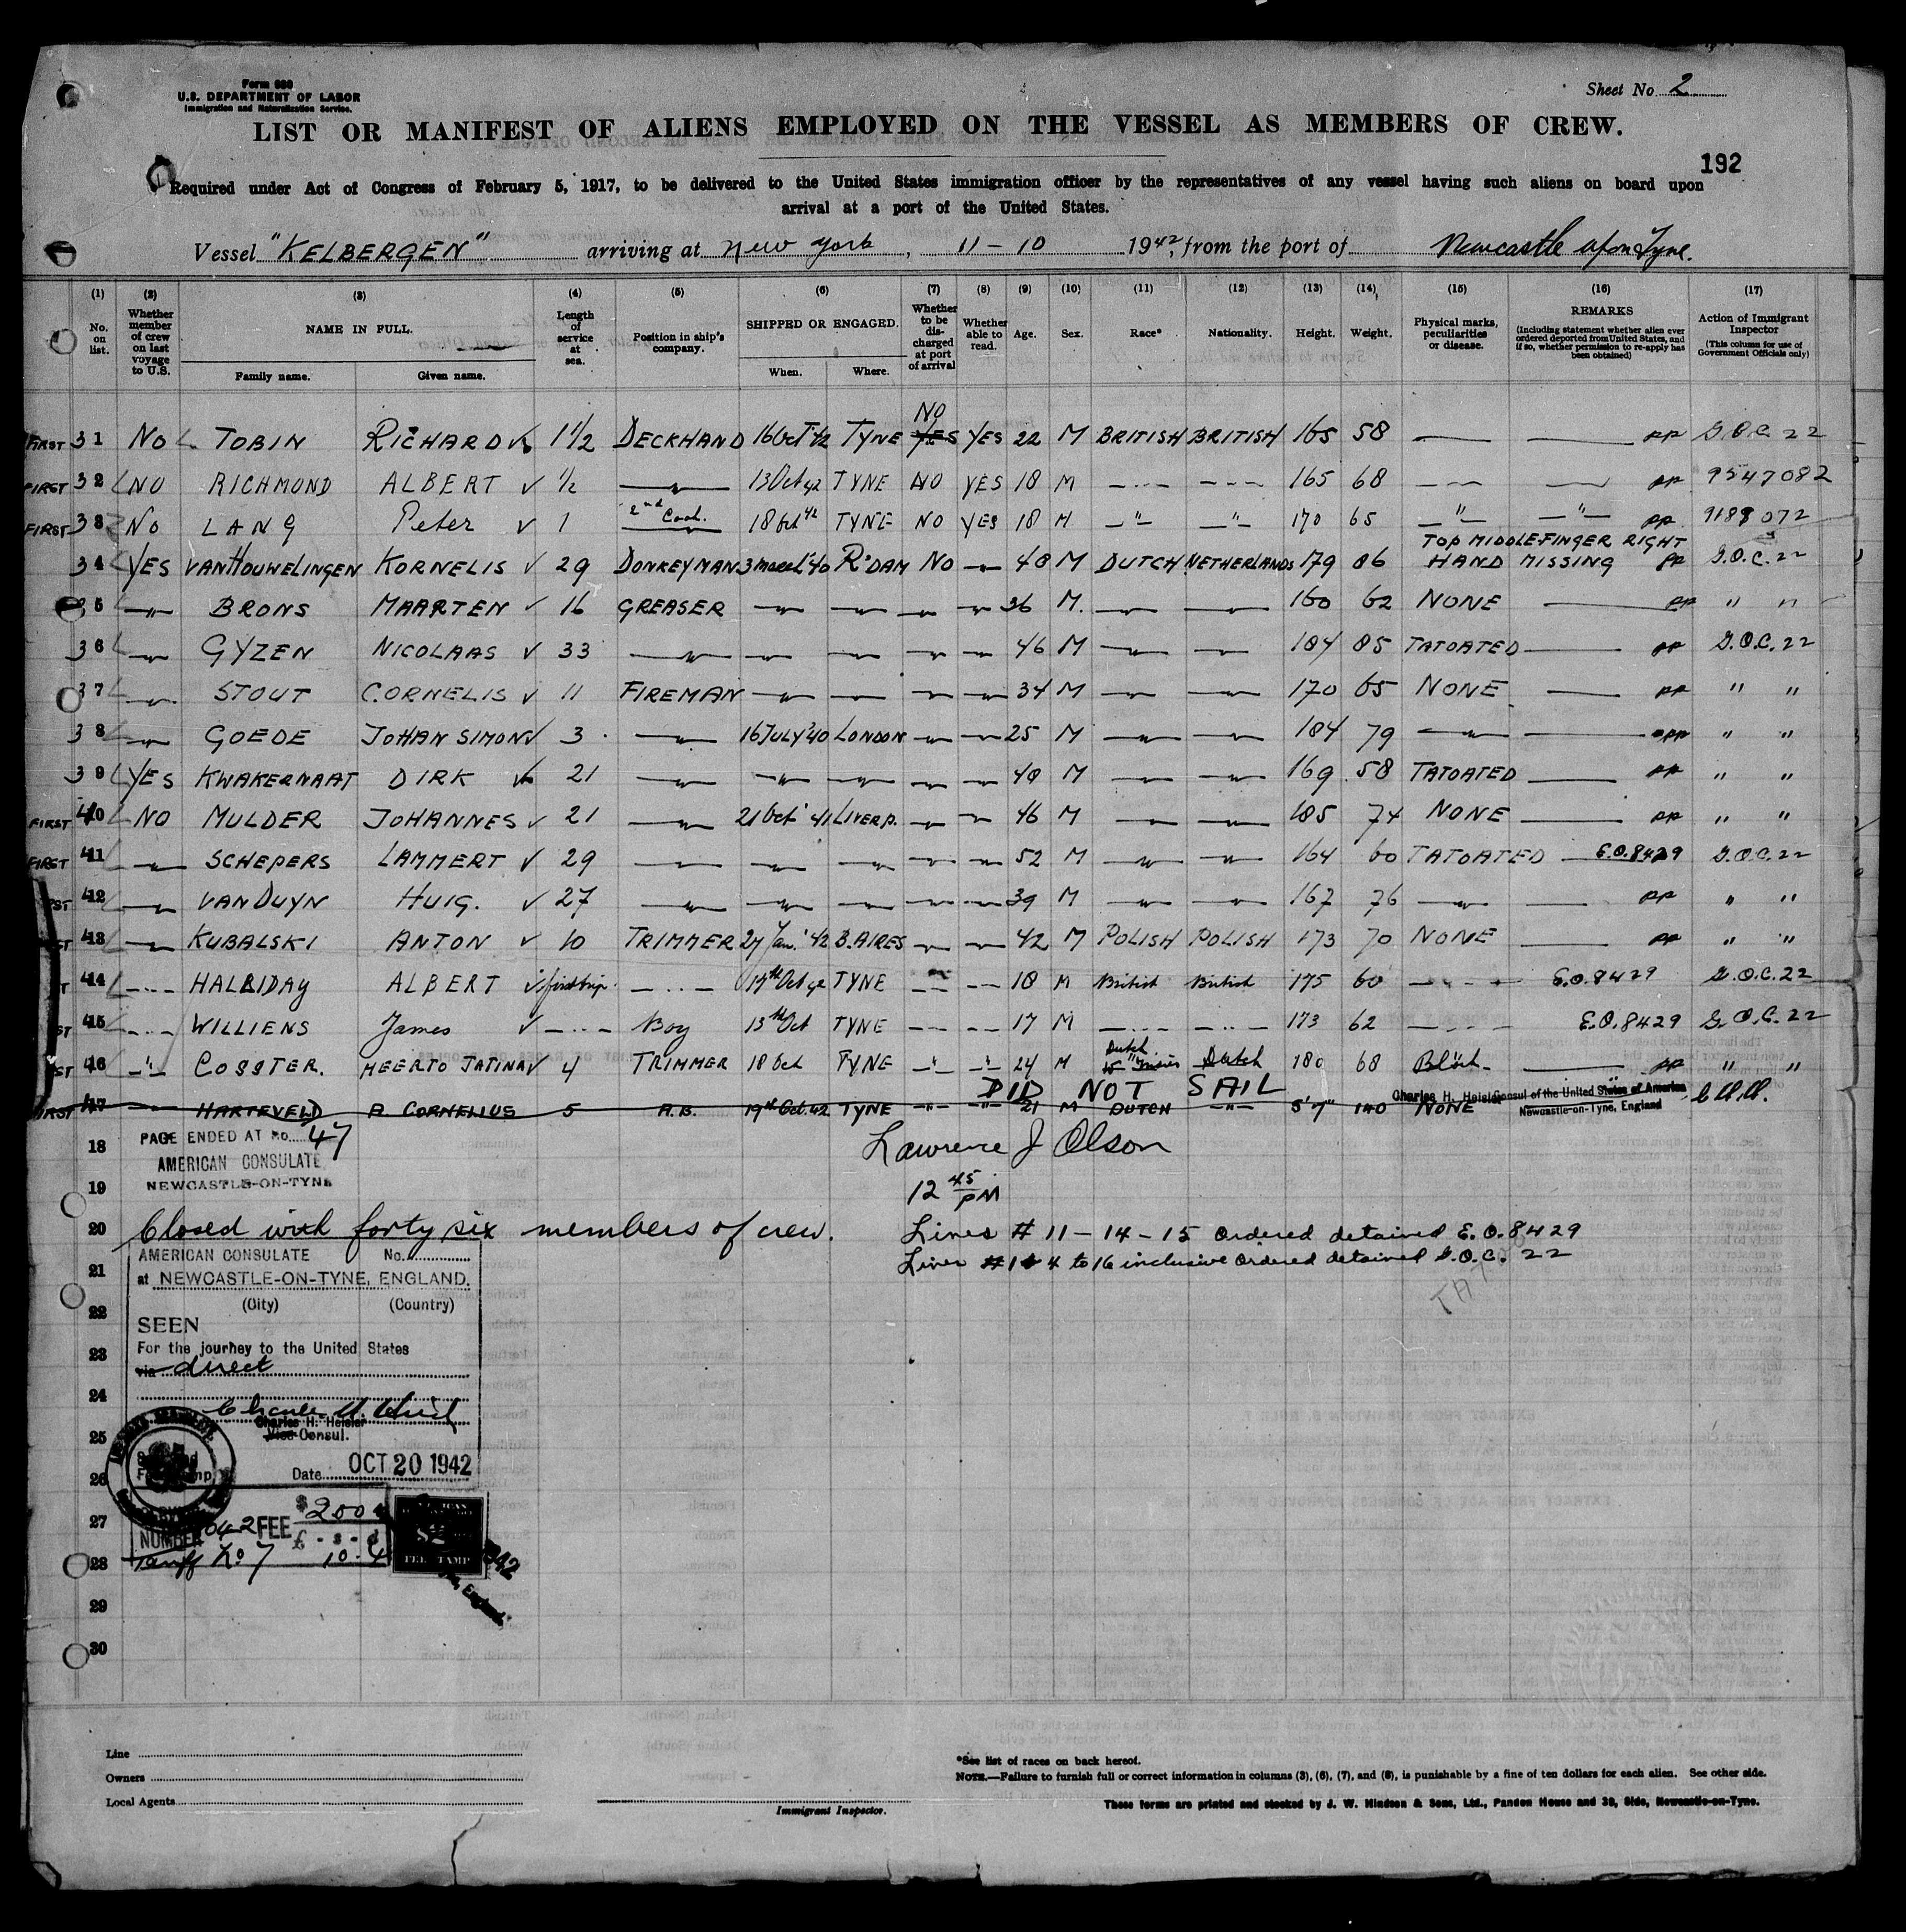 Form 680
U.S. DEPARTMENT OF LABOR
Immigration and Naturalization Service.
Sheet No. 2
LIST OR MANIFEST OF ALIENS EMPLOYED ON THE VESSEL AS MEMBERS OF CREW.
192
Required under Act of Congress of February 5, 1917, to be delivered to the United States immigration officer by the representatives of any vessel having such aliens on board upon
arrival at a port of the United States.
Vessel "KELBERGEN" arriving at New York, 11-10 1942, from the port of Newcastle upon Tyne.
(1) (2) (3) (4) (5) (6) (7) (8) (9) (10) (11) (12) (13) (14) (15) (16) (17)
No. on list. Whether member of crew on last voyage to U.S. NAME IN FULL. Family name. Given name. Length of service at sea. Position in ship's company. SHIPPED OR ENGAGED. When. Where. Whether to be discharged at port of arrival Whether able to read. Age. Sex. Race* Nationality. Height. Weight. Physical marks, peculiarities or disease. REMARKS (Including statement whether alien ever ordered deported from United States, and if so, whether permission to re-apply has been obtained) Action of Immigrant Inspector (This column for use of Government Officials only)
NO
FIRST 31 NO TOBIN RICHARD 1 1/2 DECKHAND 16 Oct 42 TYNE YES YES 22 M BRITISH BRITISH 165 58 — — PP G.O.C. 22
FIRST 32 NO RICHMOND ALBERT 1/2 —"— 13 Oct 42 TYNE NO YES 18 M —"— —"— 165 68 — — PP 9547082
FIRST 33 NO LANG Peter 1 2nd Cook. 18 Oct 42 TYNE NO YES 18 M —"— —"— 170 65 —"— —"— PP 9188072
TOP MIDDLE-FINGER RIGHT
34 YES VAN HOUWELINGEN KORNELIS 29 DONKEYMAN 3 March '40 R'DAM NO —"— 48 M DUTCH NETHERLANDS 179 86 HAND MISSING PP G.O.C. 22
35 —"— BRONS MAARTEN 16 GREASER —"— —"— —"— —"— 36 M. —"— —"— 160 62 NONE — PP " "
36 —"— GYZEN NICOLAAS 33 —"— —"— —"— —"— —"— 46 M —"— —"— 184 85 TATOATED — PP G.O.C. 22
37 —"— STOUT CORNELIS 11 FIREMAN —"— —"— —"— —"— 34 M —"— —"— 170 65 NONE — PP " "
38 —"— GOEDE JOHAN SIMON 3 —"— 16 JULY '40 LONDON —"— —"— 25 M —"— —"— 184 79 —"— — PP " "
39 YES KWAKERNAAT DIRK 21 —"— —"— —"— —"— —"— 40 M —"— —"— 169 58 TATOATED — PP " "
FIRST 40 NO MULDER JOHANNES 21 —"— 21 Oct '41 LIVERP. —"— —"— 46 M —"— —"— 185 74 NONE — PP " "
FIRST 41 —"— SCHEPERS LAMMERT 29 —"— —"— —"— —"— —"— 52 M —"— —"— 164 60 TATOATED — E.O. 8429 G.O.C. 22
ST 42 —"— VAN DUYN HUIG. 27 —"— —"— —"— —"— —"— 39 M —"— —"— 167 76 —"— — PP " "
ST 43 —"— KUBALSKI ANTON 10 TRIMMER 27 Jan. '42 B.AIRES —"— —"— 42 M POLISH POLISH 173 70 NONE — PP " "
T 44 —"— HALLIDAY ALBERT first trip —"— 19th Oct 42 TYNE —"— —"— 18 M British British 175 60 —"— E.O. 8429 G.O.C. 22
ST 45 —"— WILLIENS James —"— Boy 13th Oct TYNE —"— —"— 17 M —"— —"— 173 62 —"— E.O. 8429 G.O.C. 22
ST 46 —"— COSSTER. MEERTO JATINA 4 TRIMMER 18 Oct TYNE —"— —"— 24 M Dutch W Indies Dutch 180 68 — PP " "
DID NOT SAIL
FIRST 47 —"— HARTEVELD A CORNELIUS 5 A.B. 19th Oct. 42 TYNE —"— —"— 21 M DUTCH —"— 5'7" 140 NONE
Charles H. Heisler Consul of the United States of America
Newcastle-on-Tyne, England
PAGE ENDED AT No. 47
AMERICAN CONSULATE
NEWCASTLE-ON-TYNE
18
Lawrence J Olson
19
12 45 PM
20 Closed with forty six members of crew.
Lines # 11-14-15 Ordered detained E.O. 8429
Lines #1 4 to 16 inclusive Ordered detained G.O.C. 22
AMERICAN CONSULATE No.
at NEWCASTLE-ON-TYNE, ENGLAND.
(City) (Country)
21
22
SEEN
For the journey to the United States
23
via direct
24
Charles H. Heisler
Vice Consul.
25
Date OCT 20 1942
26
27
NUMBER FEE $2.00
£ - s - d
28
Tariff No 7 10-
FEE STAMP
29
30
Line
Owners
Local Agents
Immigrant Inspector.
*See list of races on back hereof.
NOTE.—Failure to furnish full or correct information in columns (3), (6), (7), and (8), is punishable by a fine of ten dollars for each alien. See other side.
These forms are printed and stocked by J. W. Hindson & Sons, Ltd., Pandon House and 39, Side, Newcastle-on-Tyne.